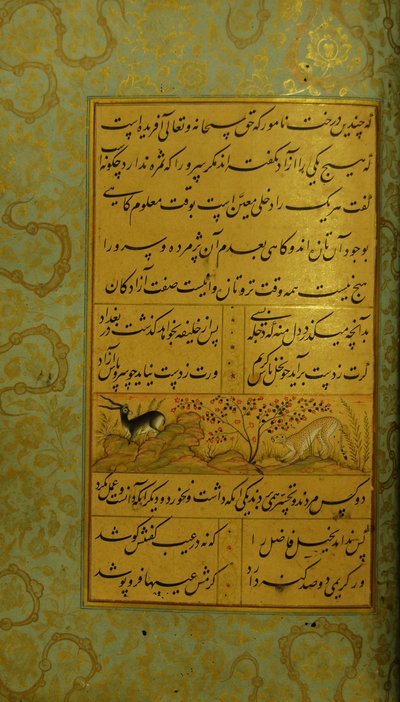 که چندین درخت نامور که حق سبحانه و تعالی آفریده است
که هیچ یکی را آزاد نگفته اند مگر سرو را که ثمره ندارد چگونه است
گفت هر یک را دخلی معین است بوقت معلوم کاهی
بوجود آن تازه اند و کاهی بعدم آن پژمرده و سرو را
هیچ نیست همه وقت تر و تازه و اینست صفت آزادکان
بدآنچه میکذرد دل منه که دجله بسی
پس از خلیفه بخواهد کذشت در بغداد
کرت ز دست برآید چو نخل باش کریم
ورت ز دست نیاید چو سرو باش آزاد
دو کس مردند و تحسر همی بردند یکی آنکه داشت و نخورد و دیکر آنکه دانست و عمل نکرد
کس نداند بخیل فاضل را
که نه در عیب کفتنش کوشد
ور کریمی دو صد کنه دارد
کرمش عیبها فرو پوشد